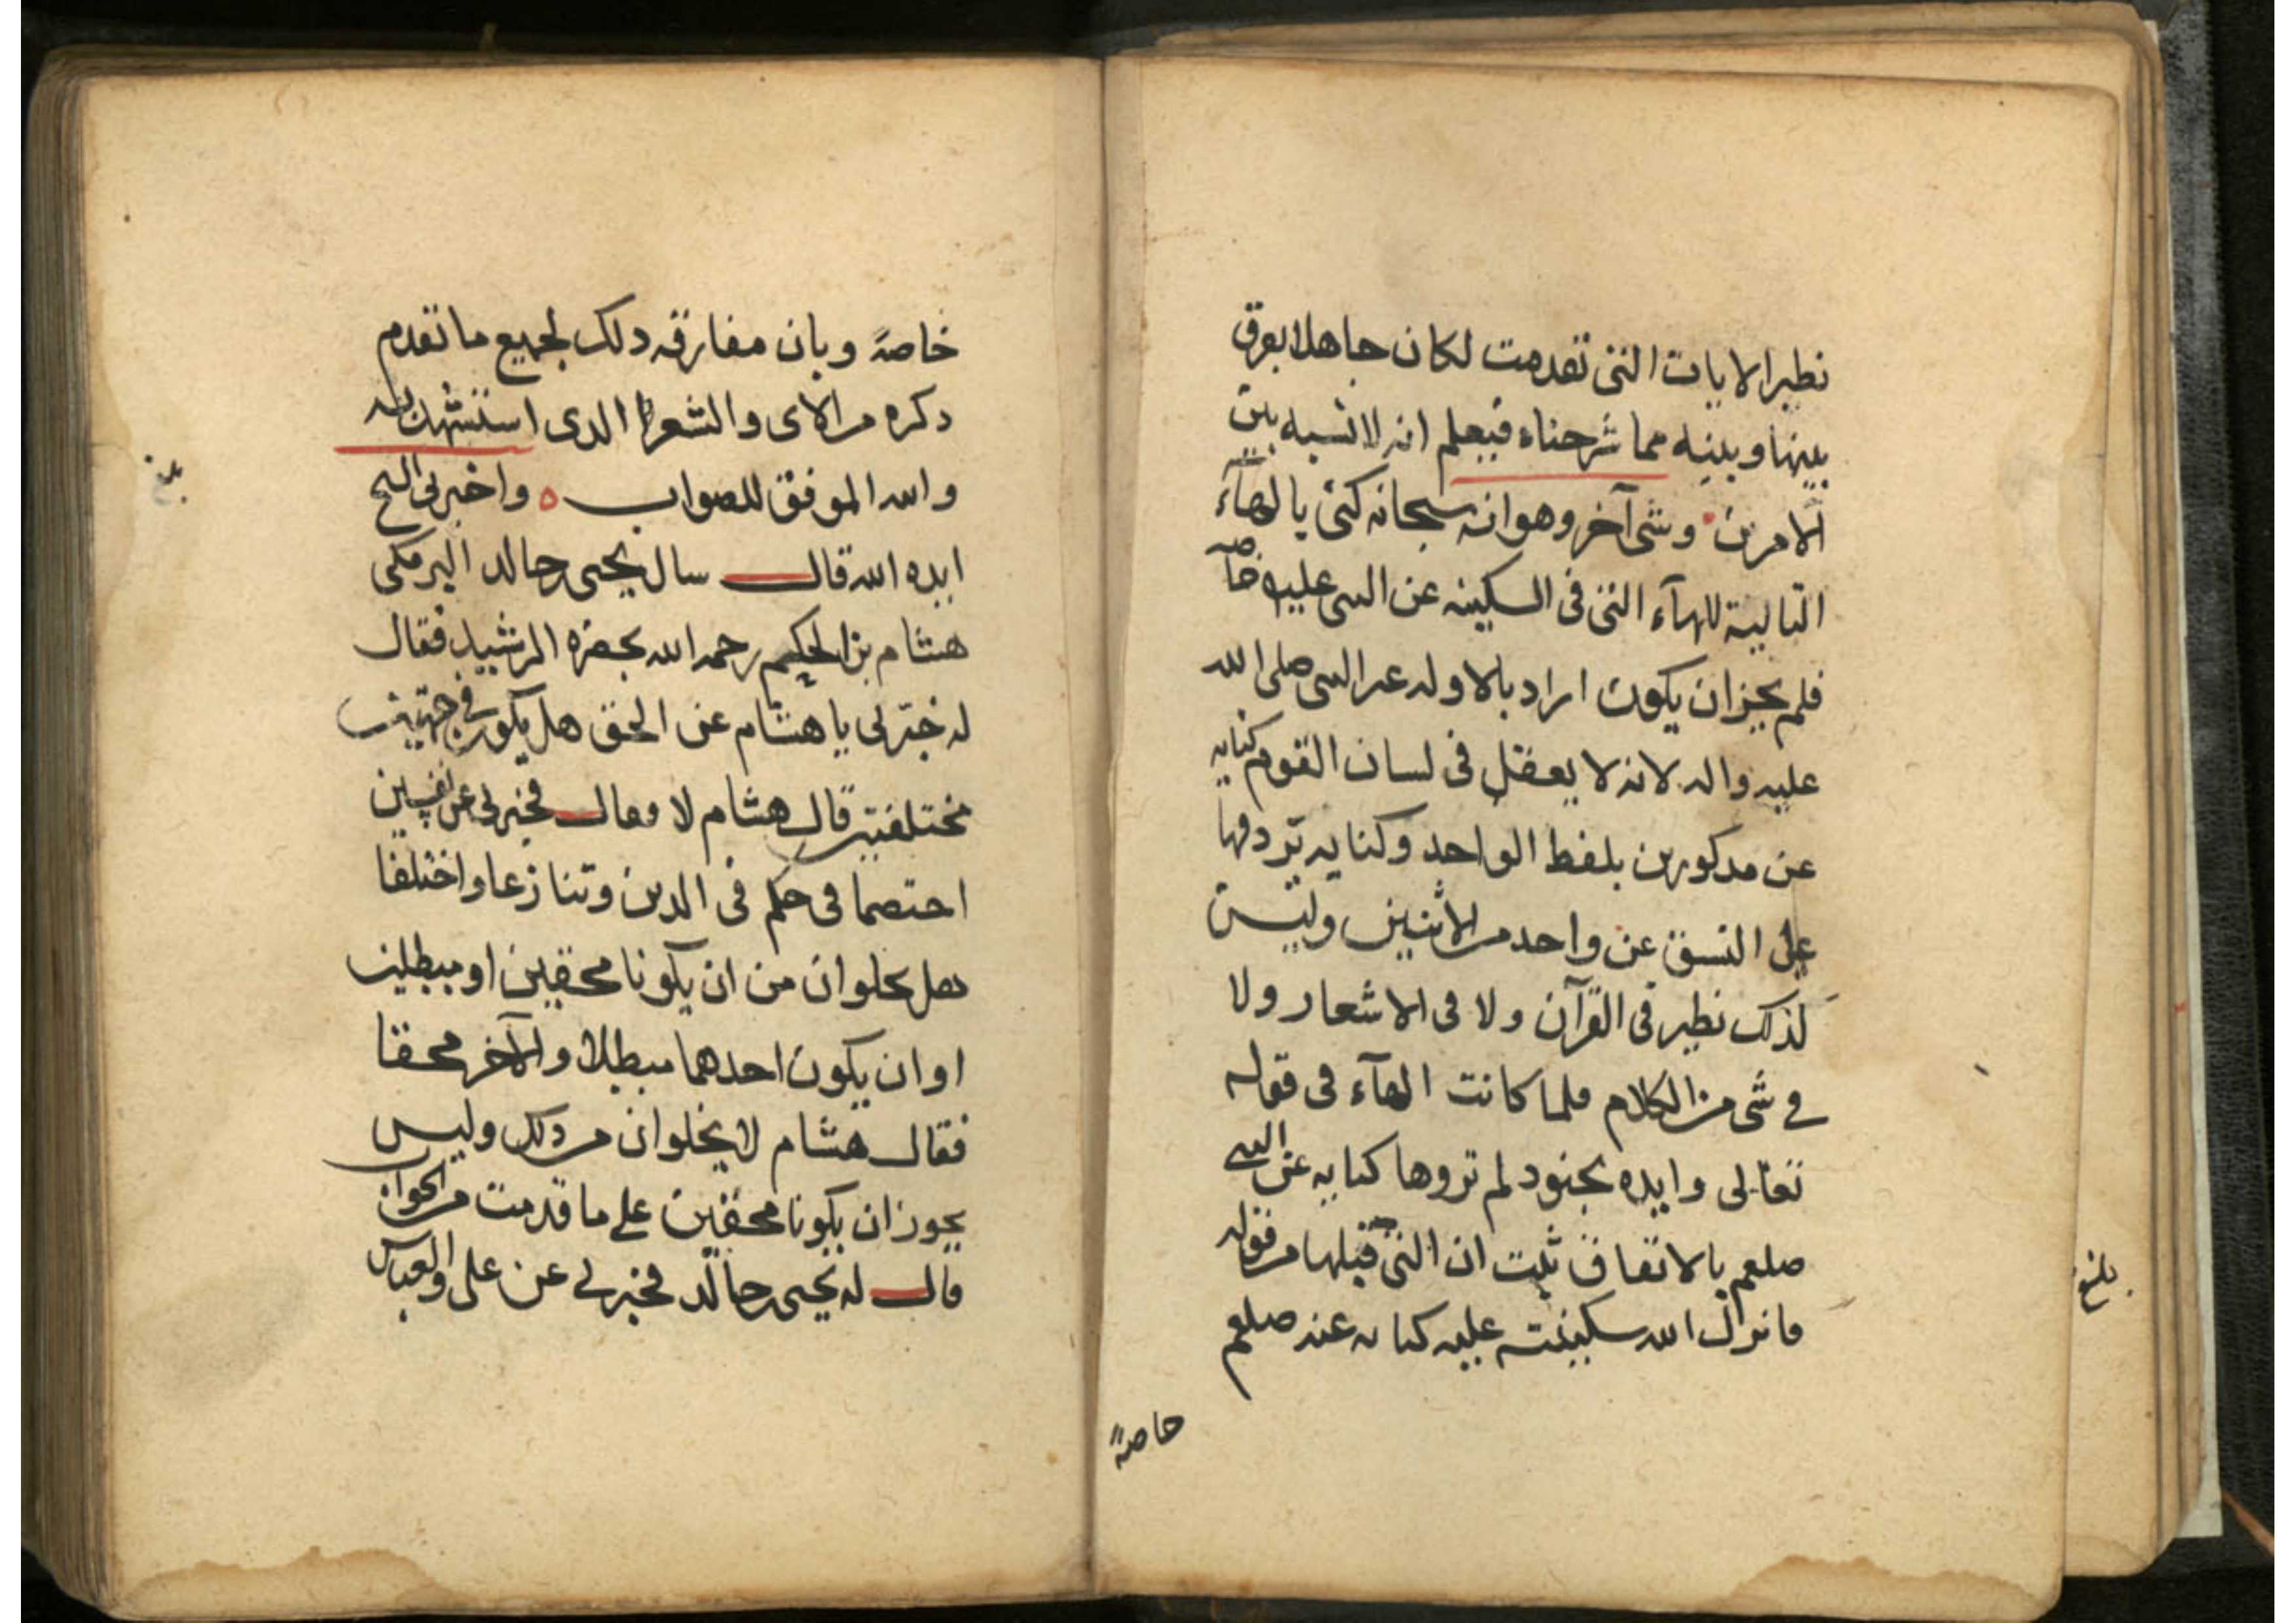 نظير الايات التى تقدمت لكان جاهلا بفرق
بينها وبينه مما شرحناه فيعلم انه لا نسبه بين
الامرين وشى آخر وهو انه سبحانه كنى بالهآء
التالية للهآء التى فى السكينه عن النبى عليه خاصه
فلم يجز ان يكون اراد بالاوله عىر النبى صلى الله
عليه واله لانه لا يعقل فى لسان القوم كنايه
عن مدكورين بلفظ الواحد وكنايه تردفها
على النسق عن واحد من الاثنين وليس
لذلك نظير فى القرآن ولا فى الاشعار ولا
في شى من الكلام فلما كانت الهآء فى قوله
تعالى وايده بجنود لم تروها كنايه عن النبي
صلعم بالاتفاق ثبت ان التى قبلها من قوله
فانزل الله سكينته عليه كنايه عنه صلعم
حاصةً
بلغ
خاصةً وبان مفارقه دلك لجميع ما تقدم
دكره من الاى والشعر الدى استشهد به
والله الموفق للصواب ه واخبرنى الشيخ
ايده الله قال سال يحيى بن خالد البرمكى
هشام بن الحكم رحمه الله بحضرة الرشيد فقال
له خبرنى يا هشام عن الحق هل يكون في جهتين
مختلفتين قال هشام لا وقال فخبرنى عن نفسين
اختصما فى حكم فى الدين وتنازعا واختلفا
هل يخلوان من ان يكونا محقين او مبطلين
او ان يكون احدهما مبطلا والآخر محقا
فقال هشام لا يخلوان من دلك وليس
يجوز ان يكونا محقين على ما قدمت من الجواب
قال له يحيى بن خالد فخبرني عن على والعباس
بلغ